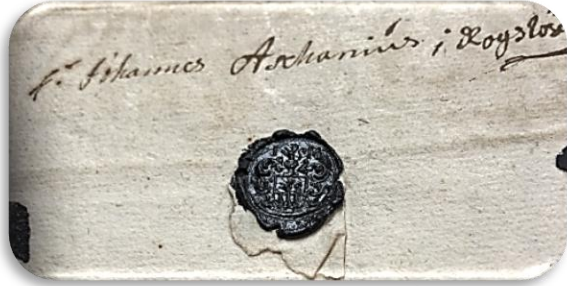 Johannes Aschanius i Rogslösa